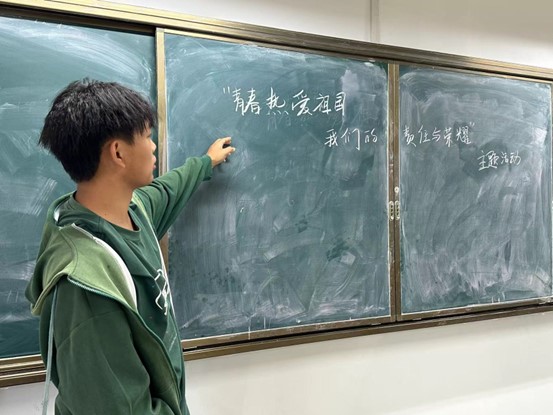 "青春热爱祖国
我们的责任与荣耀"
主题活动